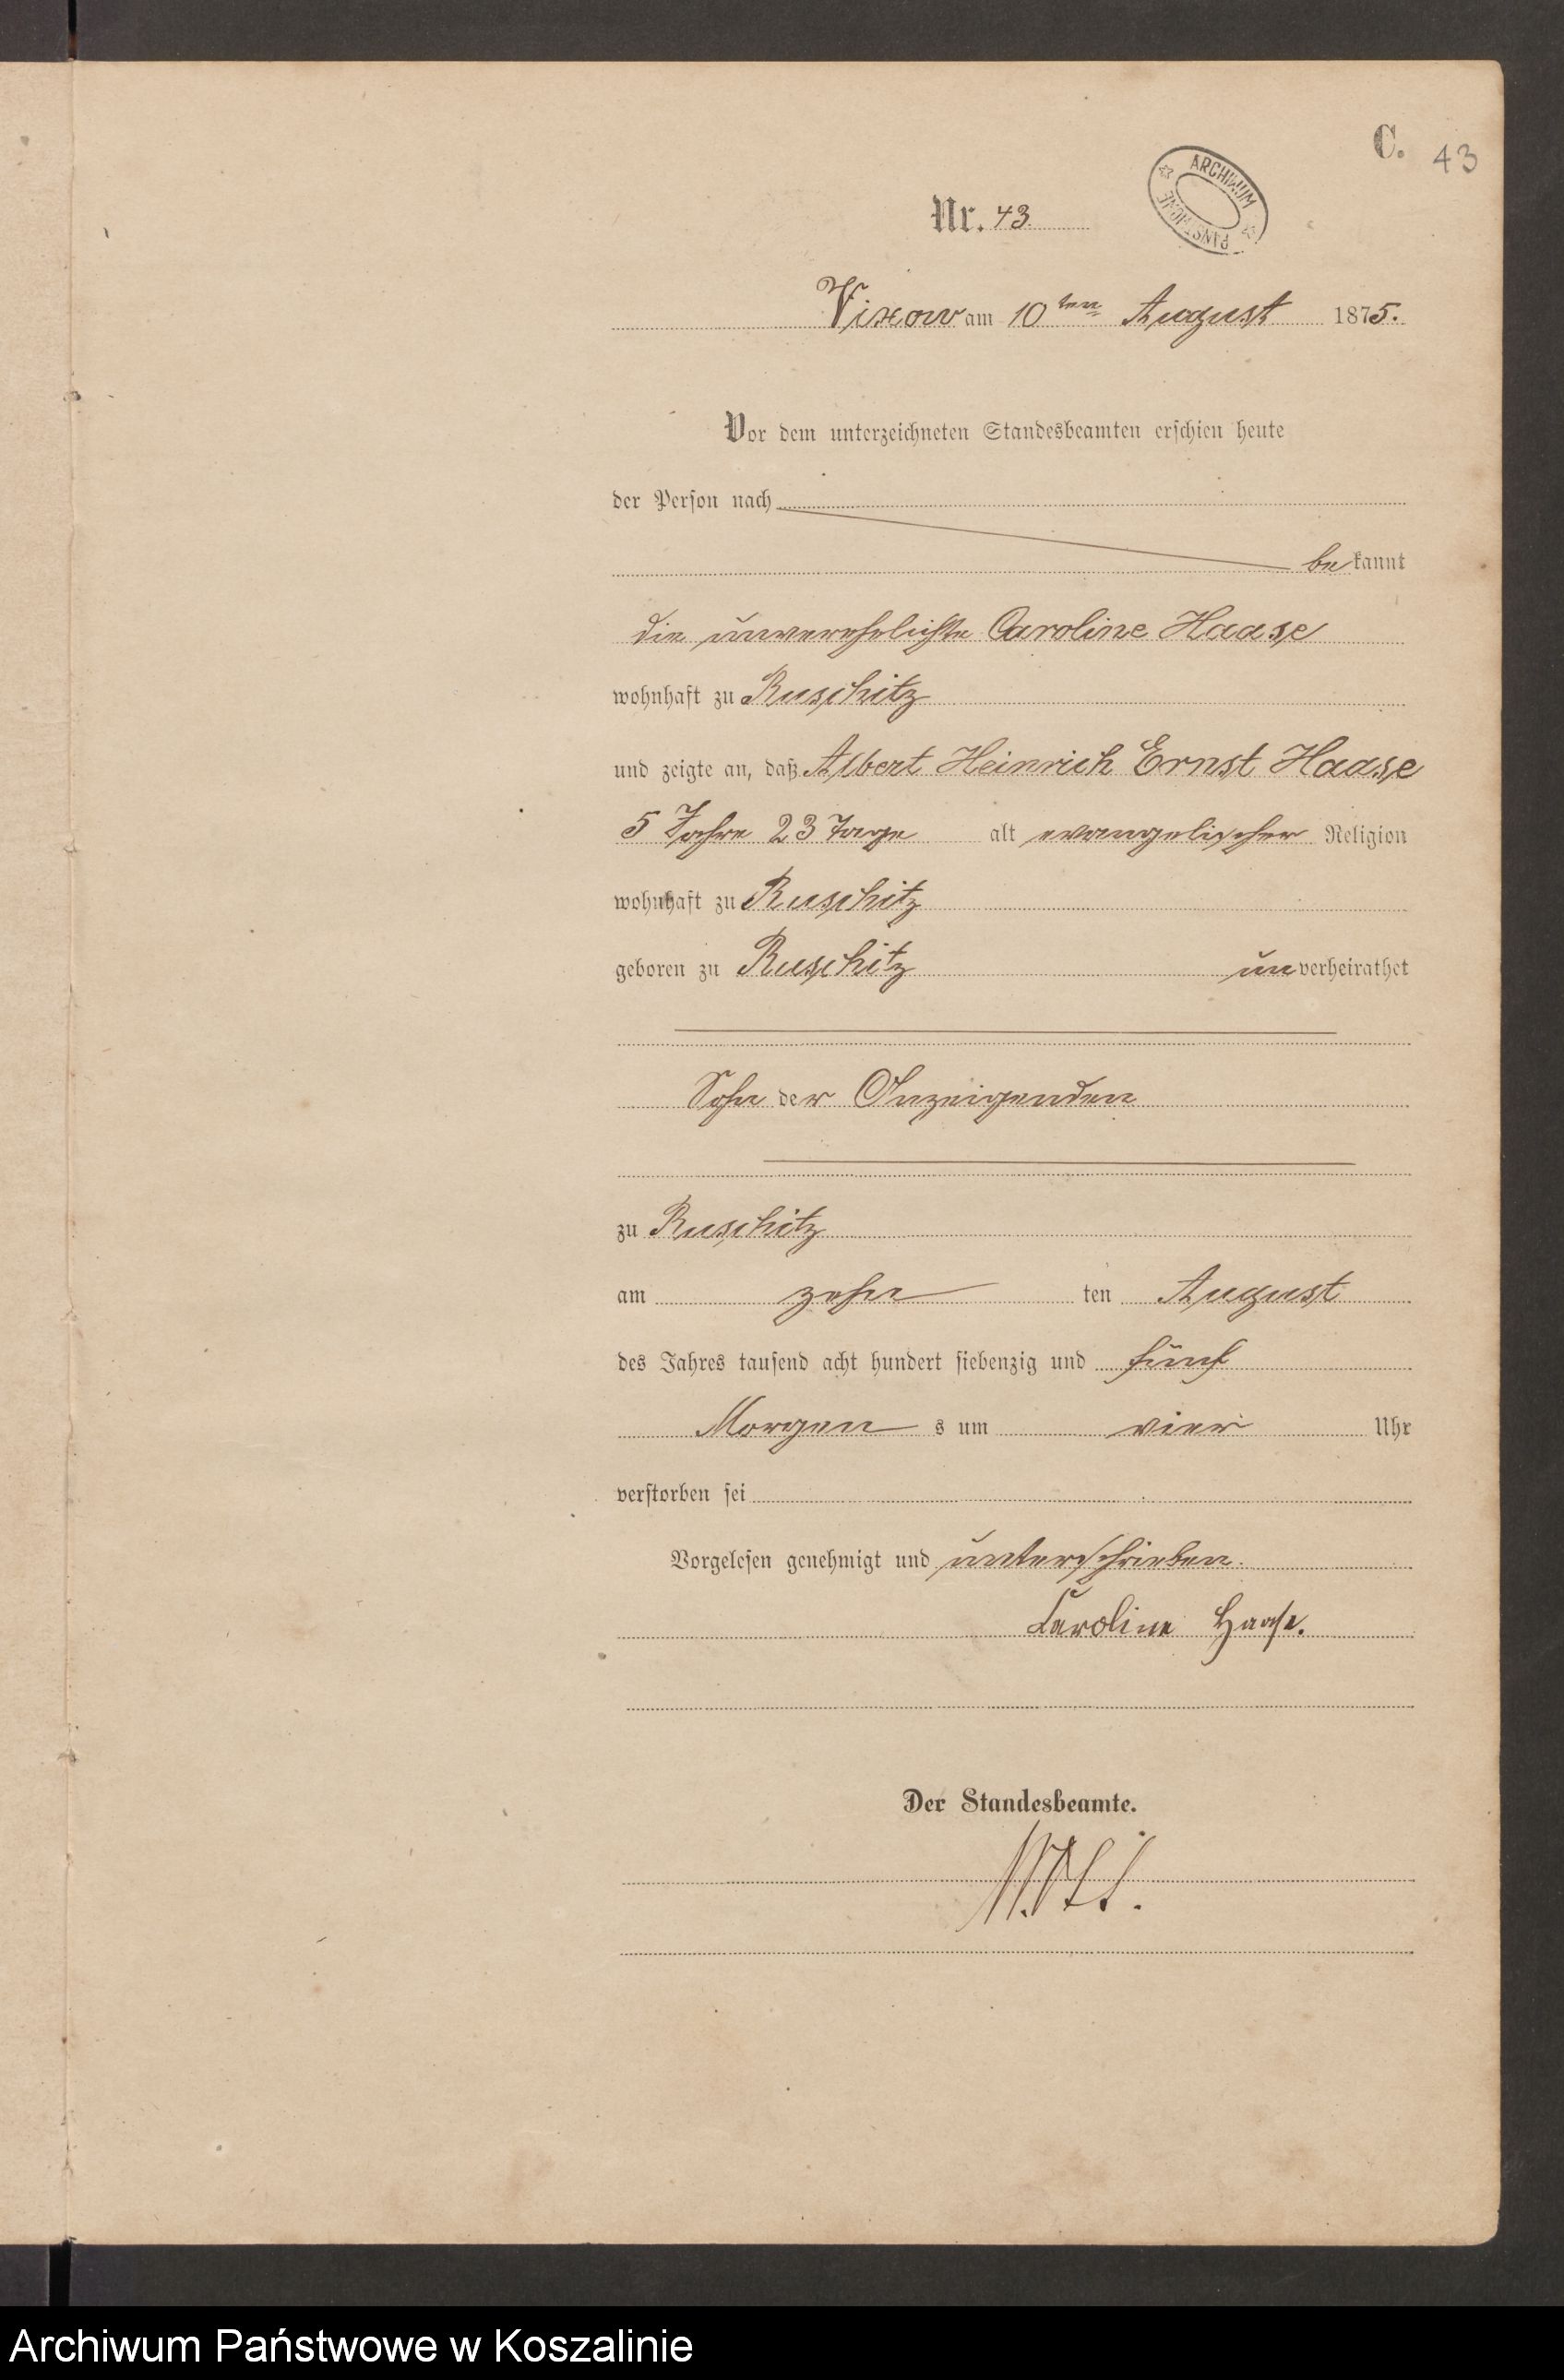 C. 43
ARCHIWUM PAŃSTWOWE
Nr. 43.
Vixow am 10ten August 1875.
Vor dem unterzeichneten Standesbeamten erschien heute
der Person nach
bekannt
die unverehelichte Caroline Haase
wohnhaft zu Ruschitz
und zeigte an, daß Albert Heinrich Ernst Haase
5 Jahre 23 Tage alt evangelischer Religion
wohnhaft zu Ruschitz
geboren zu Ruschitz unverheirathet
Sohn der Anzeigenden
zu Ruschitz
am zehn ten August
des Jahres tausend acht hundert siebenzig und fünf
Morgen s um vier Uhr
verstorben sei
Vorgelesen genehmigt und unterschrieben.
Caroline Haase.
Der Standesbeamte.
Archiwum Państwowe w Koszalinie